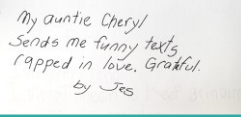 My auntie Cheryl
Sends me funny texts
rapped in love. Grateful.
by Jes